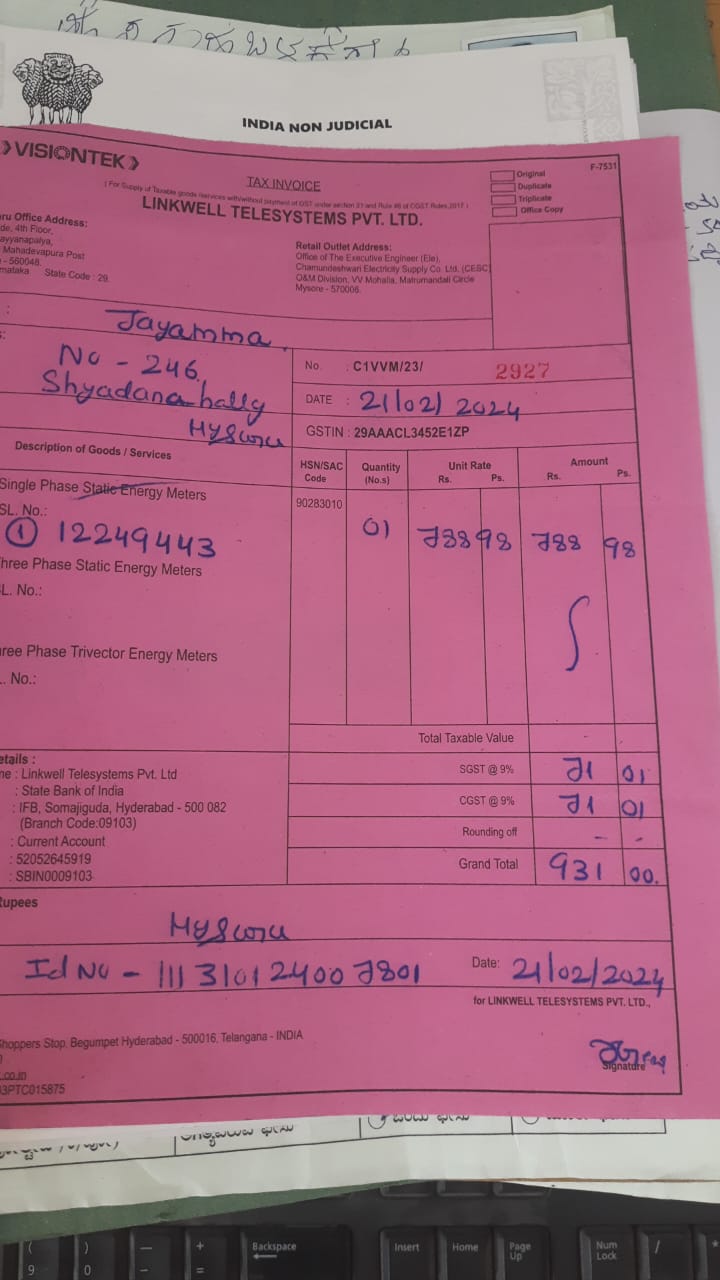 INDIA NON JUDICIAL
VISIONTEK
TAX INVOICE
F-7531
(For Supply of Taxable goods /services with/without payment of GST under section 31 and Rule 46 of CGST Rules,2017)
LINKWELL TELESYSTEMS PVT. LTD.
Original
Duplicate
Triplicate
Office Copy
ru Office Address:
de, 4th Floor,
ayyanapalya,
Mahadevapura Post
- 560048.
rnataka State Code : 29.
Retail Outlet Address:
Office of The Executive Engineer (Ele),
Chamundeshwari Electricity Supply Co. Ltd. (CESC)
O&M Division, VV Mohalla, Matrumandali Circle
Mysore - 570006.
: Jayamma
No - 246,
Shyadanahally
Mysuru
No : C1VVM/23/ 2927
DATE : 21/02/2024
GSTIN : 29AAACL3452E1ZP
Description of Goods / Services
HSN/SAC Code
Quantity (No.s)
Unit Rate Rs. Ps.
Amount Rs. Ps.
Single Phase Static Energy Meters
90283010
SL. No.:
① 12249443
01 788 98 788 98
hree Phase Static Energy Meters
L. No.:
ree Phase Trivector Energy Meters
. No.:
Total Taxable Value -
etails :
SGST @ 9% 71 01
me : Linkwell Telesystems Pvt. Ltd
: State Bank of India
CGST @ 9% 71 01
: IFB, Somajiguda, Hyderabad - 500 082
(Branch Code:09103)
Rounding off - -
: Current Account
: 52052645919
Grand Total 931 00.
: SBIN0009103
Rupees
Mysuru
Id No - 111310124007801
Date: 21/02/2024
for LINKWELL TELESYSTEMS PVT. LTD.,
Shoppers Stop, Begumpet Hyderabad - 500016, Telangana - INDIA
.co.in
3PTC015875
Signature
( 9
) 0
— -
+ =
Backspace
Insert
Home
Page Up
Num Lock
/
*